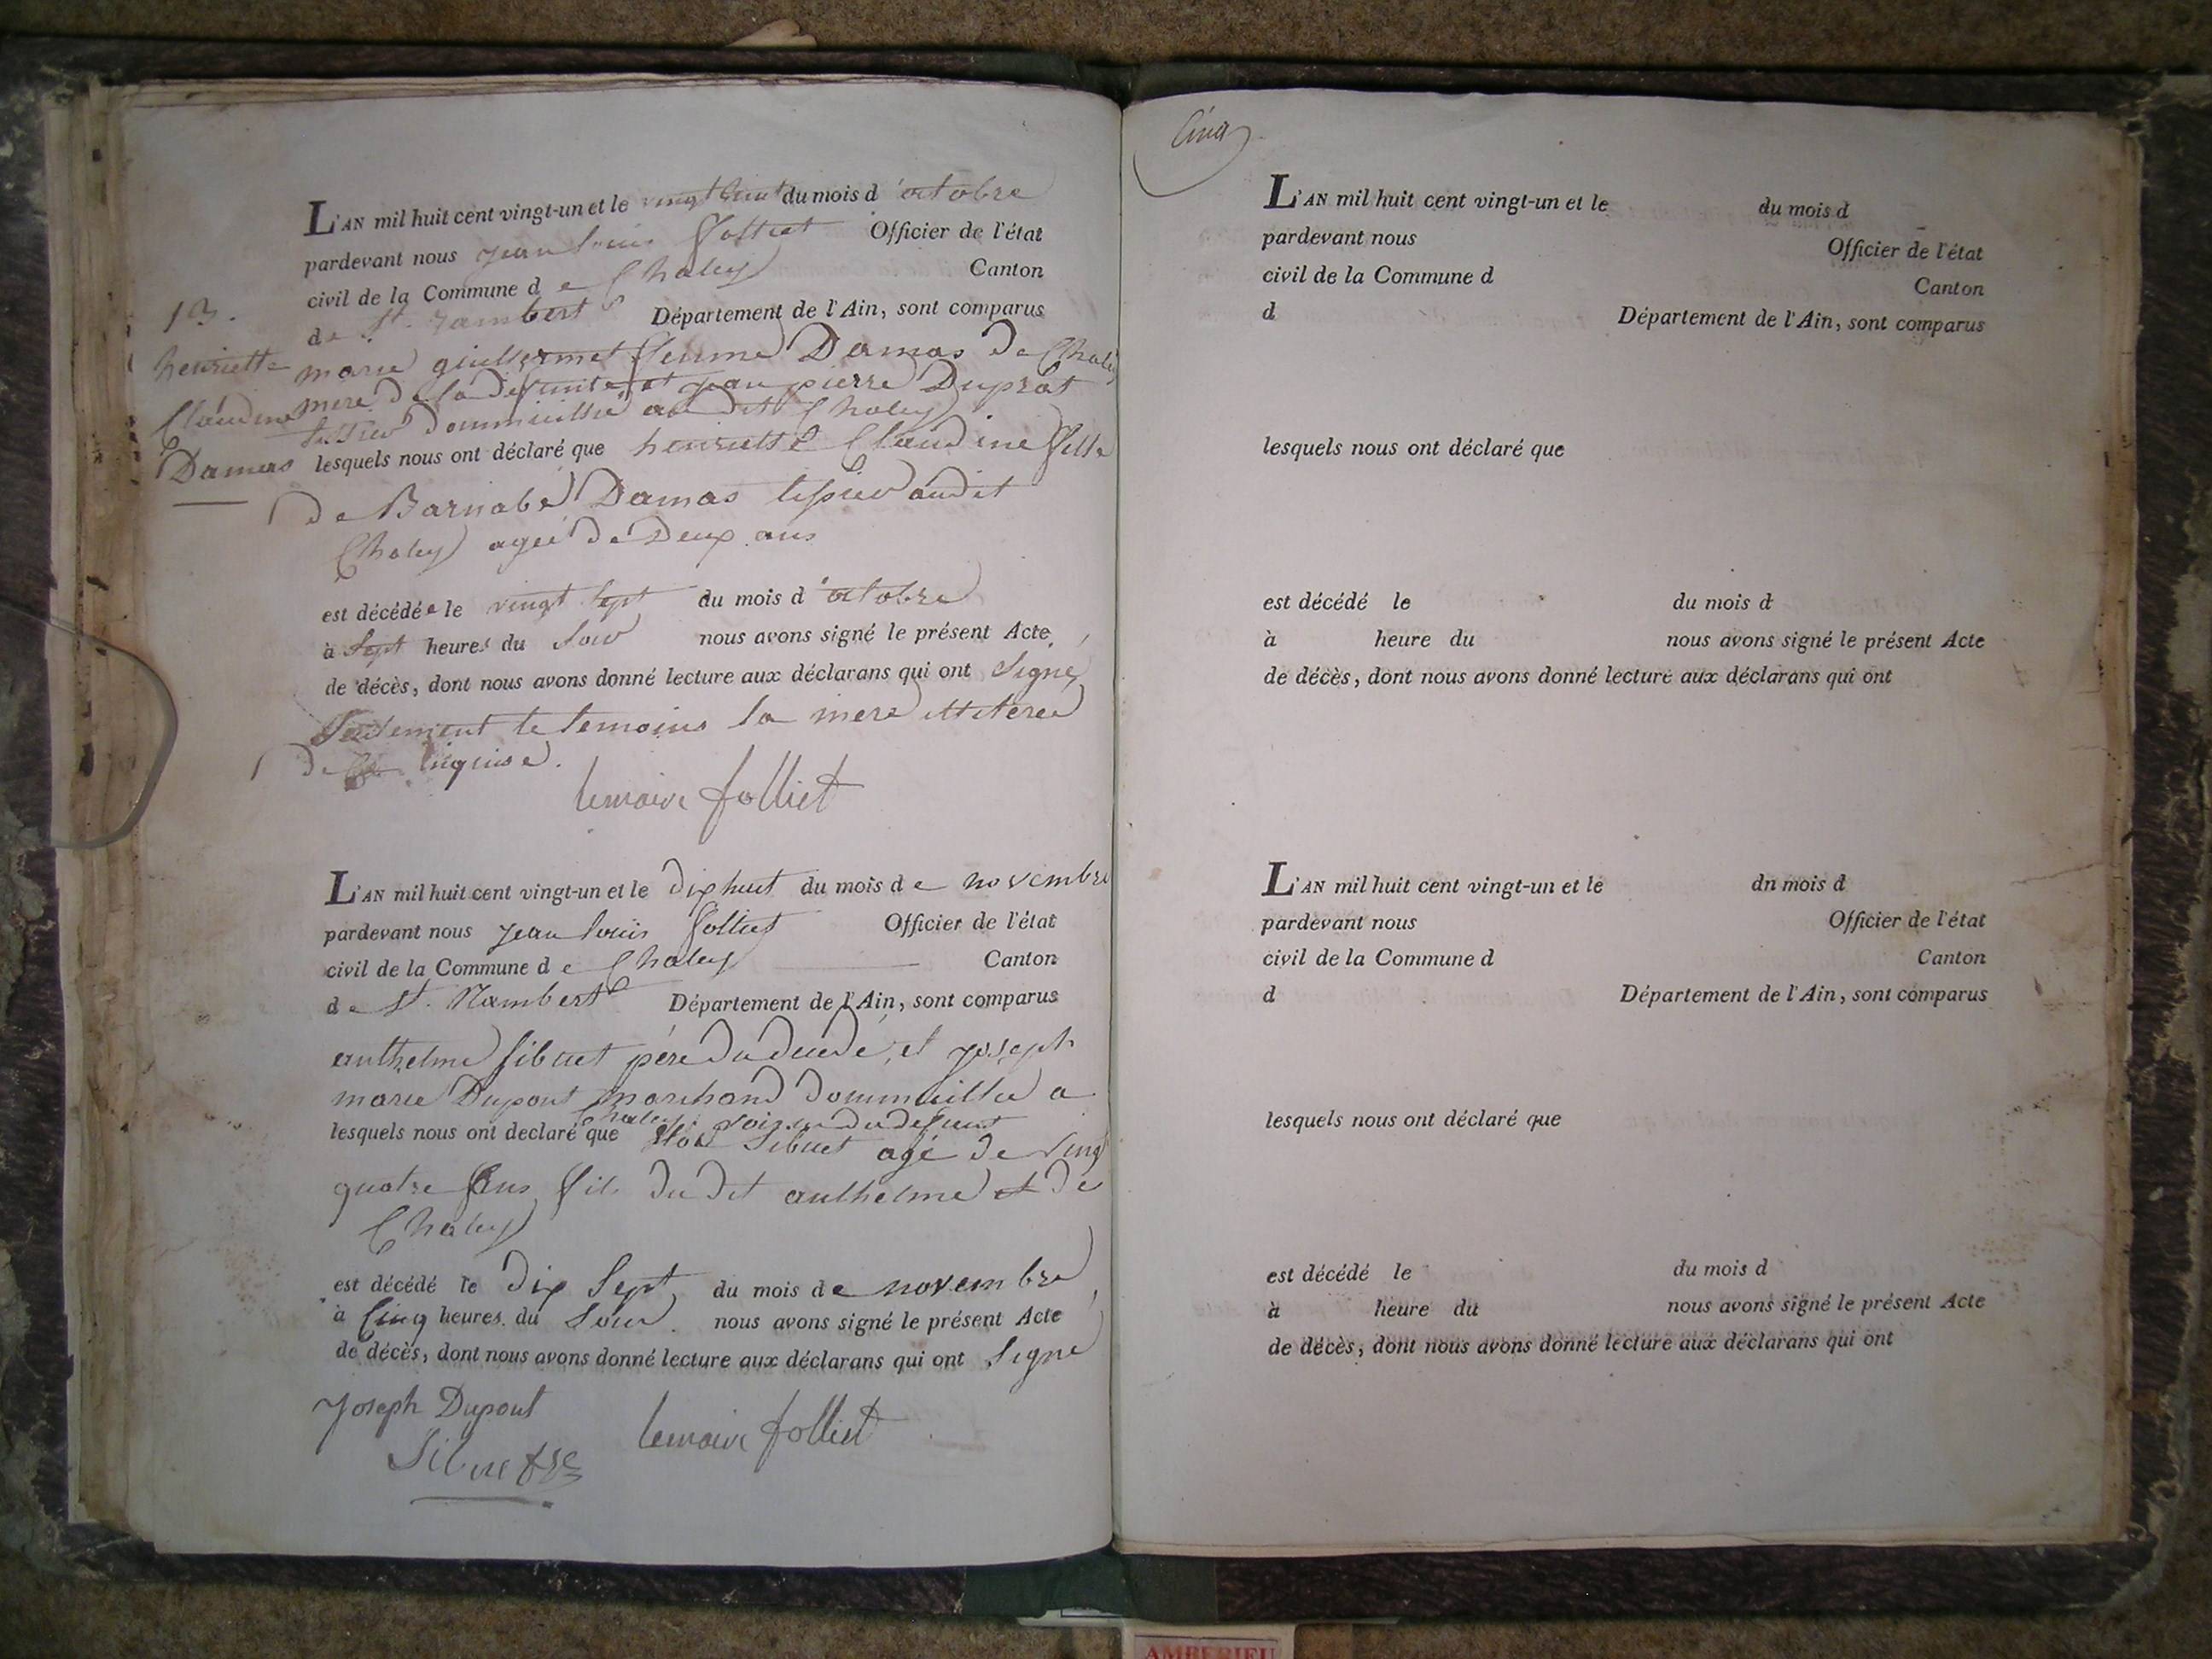 L'AN mil huit cent vingt-un et le vingt huit du mois d'octobre
pardevant nous jean louis folliet Officier de l'état
civil de la Commune de Chaley Canton
de St. rambert Département de l'Ain, sont comparus
13.
henriette
Claudine
Damas
marie femme Damas de Chaley
mere de la defunte et jean pierre Duprat
tissieur dommicillié au dit Chaley
lesquels nous ont déclaré que henriette Claudine fille
de Barnabé Damas tissieur audit
Chaley ageé de Deux ans
est décédée le vingt sept du mois d'octobre
à sept heures du soir nous avons signé le présent Acte
de décès, dont nous avons donné lecture aux déclarans qui ont signé
seulement le temoins la mere
de
lemaire folliet
L'AN mil huit cent vingt-un et le dix huit du mois de novembre
pardevant nous jean louis folliet Officier de l'état
civil de la Commune de Chaley Canton
de St. Rambert Département de l'Ain, sont comparus
anthelme sibuet père du décédé, et joseph
marie Dupont marchand dommicillié a
Chaley voisin du defunt
lesquels nous ont declaré que Sibuet agé de vingt
quatre ans fils du dit anthelme et de
Chaley
est décédé le dix sept du mois de novembre
à cinq heures du soir nous avons signé le présent Acte
de décès, dont nous avons donné lecture aux déclarans qui ont signé
Joseph Dupont
lemaire folliet
Sibuet
Cinq
L'AN mil huit cent vingt-un et le du mois d
pardevant nous Officier de l'état
civil de la Commune d Canton
d Département de l'Ain, sont comparus
lesquels nous ont déclaré que
est décédé le du mois d
à heure du nous avons signé le présent Acte
de décès, dont nous avons donné lecture aux déclarans qui ont
L'AN mil huit cent vingt-un et le dn mois d
pardevant nous Officier de l'état
civil de la Commune d Canton
d Département de l'Ain, sont comparus
lesquels nous ont déclaré que
est décédé le du mois d
à heure du nous avons signé le présent Acte
de décès, dont nous avons donné lecture aux déclarans qui ont
AMBERIEU